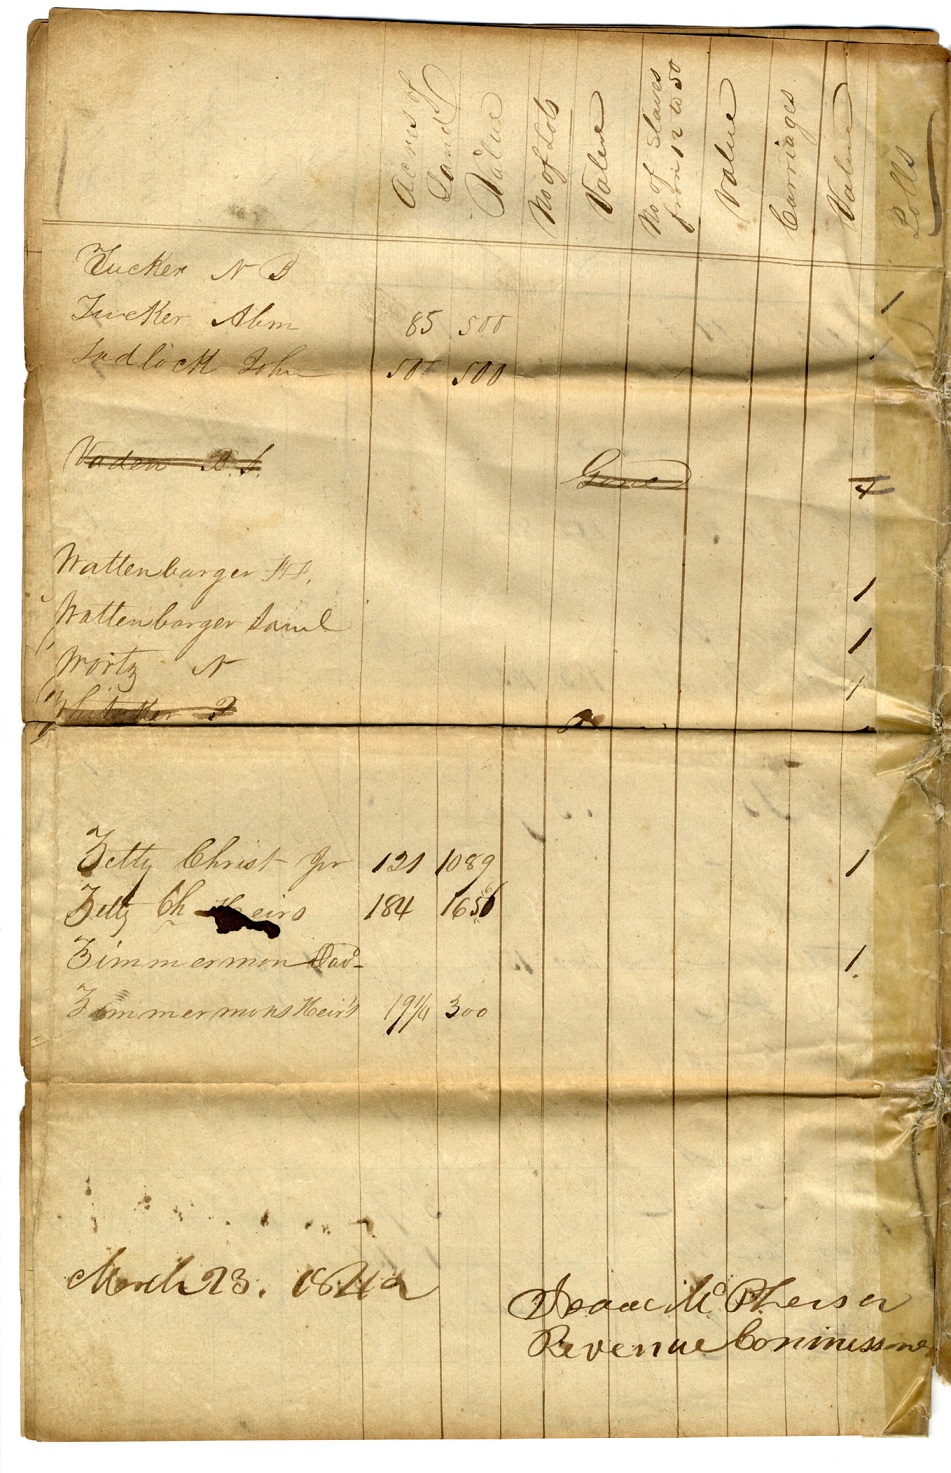 Acres of Land
Value
No of Lots
Value
No of Slaves from 12 to 50
Value
Carriages
Value
Polls
Tucker N B 1
Tucker Abm 85 500
Tadlock John 505 500
Vaden B. S. Gone 1
Wattenbarger
Wattenbarger Saml 1
Wortz N 1
Whitaker
Zetty Christ Jr 121 1089 1
Zetty Ch Heirs 184 1656
Zimmermon Davd 1
Zimmermons Heirs 19¼ 300
March 23. 1842
Isaac McPherson
Revenue Commissioner